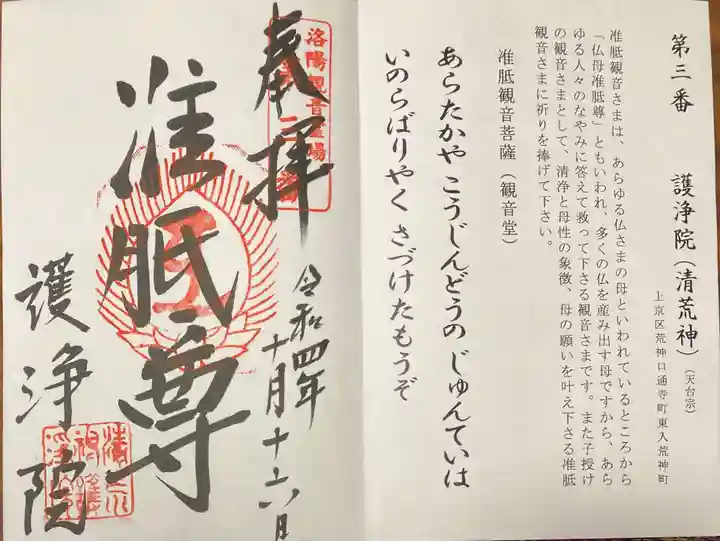 第三番 護浄院(清荒神)(天台宗)
上京区荒神口通寺町東入荒神町
准胝観音さまは、あらゆる仏さまの母といわれているところから
「仏母准胝尊」ともいわれ、多くの仏を産み出す母ですから、あら
ゆる人々のなやみに答えて救って下さる観音さまです。また子授け
の観音さまとして、清浄と母性の象徴、母の願いを叶え下さる准胝
観音さまに祈りを捧げて下さい。
准胝観音菩薩(観音堂)
あらたかや こうじんどうの じゅんていは
いのらばりやく さづけたもうぞ
奉拝
洛陽観音霊場
令和四年
十月十六日
准胝尊
護浄院